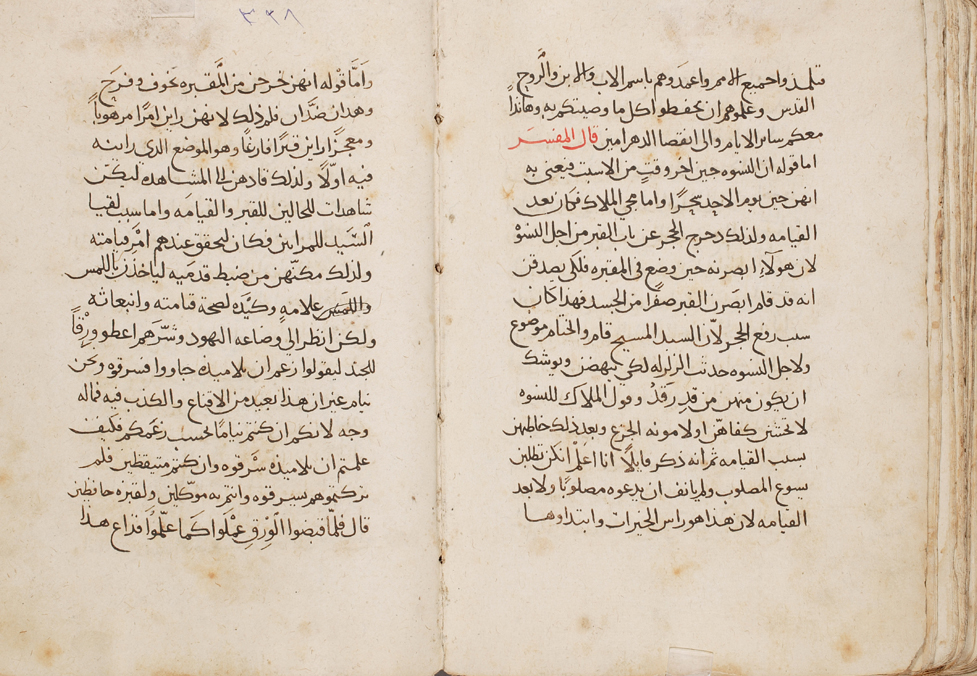 فتلمذوا جميع الامم واعمدوهم باسم الاب والابن والروح
القدس وعلموهم ان يحفظوا كل ما وصيتكم به وهانذا
معكم ساير الايام والى انقضا الدهر امين قال المفسر
اما قوله ان النسوه جين اخر وقت من السبت فيعني به
انهن جين يوم الاحد سحرًا واما مجي الملاك فكان بعد
القيامه ولذلك دحرج الحجر عن باب القبر من اجل النسوه
لان هولاء ابصرنه حين وضع في المقبره فلكي يصدقن
انه قد قام ابصرن القبر صفرًا من الجسد فهذا كان
سبب رفع الحجر لان السيد المسيح قام والختام موضوع
ولاجل النسوه حدثت الزلزله لكي تنهض ويوشك
ان يكون منهن من قد رقد وقول الملاك للنسوه
لا تخشين كفاهن اولا مونه الجزع وبعد ذلك خاطبهن
بسبب القيامه ثم انه ذكر قايلًا انا اعلم انكن تطلبن
يسوع المصلوب ولم يانف ان يدعوه مصلوبًا ولا بعد
القيامه لان هذا هو راس الخيرات وابتداوها
٣٣٨
واما قوله انهن خرجن من المقبره بخوف وفرح
وهذان ضدان فلم ذلك لانهن راين امرًا مرهوبًا
ومعجزًا راين قبرًا فارغًا وهو الموضع الذي راينه
فيه اولًا ولذلك قادهن الى المشاهده ليكن
شاهدات للحالين للقبر والقيامه واما سبب لقيا
السيد للمراتين فكان ليحقق عندهم امر قيامته
ولذلك مكنهن من ضبط قدميه لياخذن باللمس
علامه وكيده لصحة قيامته وانبعاثه
ولكن انظر الي وضاعه اليهود وشرهم اعطوا ورقًا
للجند ليقولوا زعم ان تلاميذه جاووا فسرقوه ونحن
نيام غير ان هذا بعيد من الاقناع والكذب فيه فماله
وجه لانكم ان كنتم نيامًا بحسب زعمكم فكيف
علمتم ان تلاميذه سرقوه وان كنتم متيقظين فلم
تركتموهم سرقوه وانتم به موكلين ولقبره حافظين
قال فلما قبضوا الورق عملوا كما علموا فذاع هذا